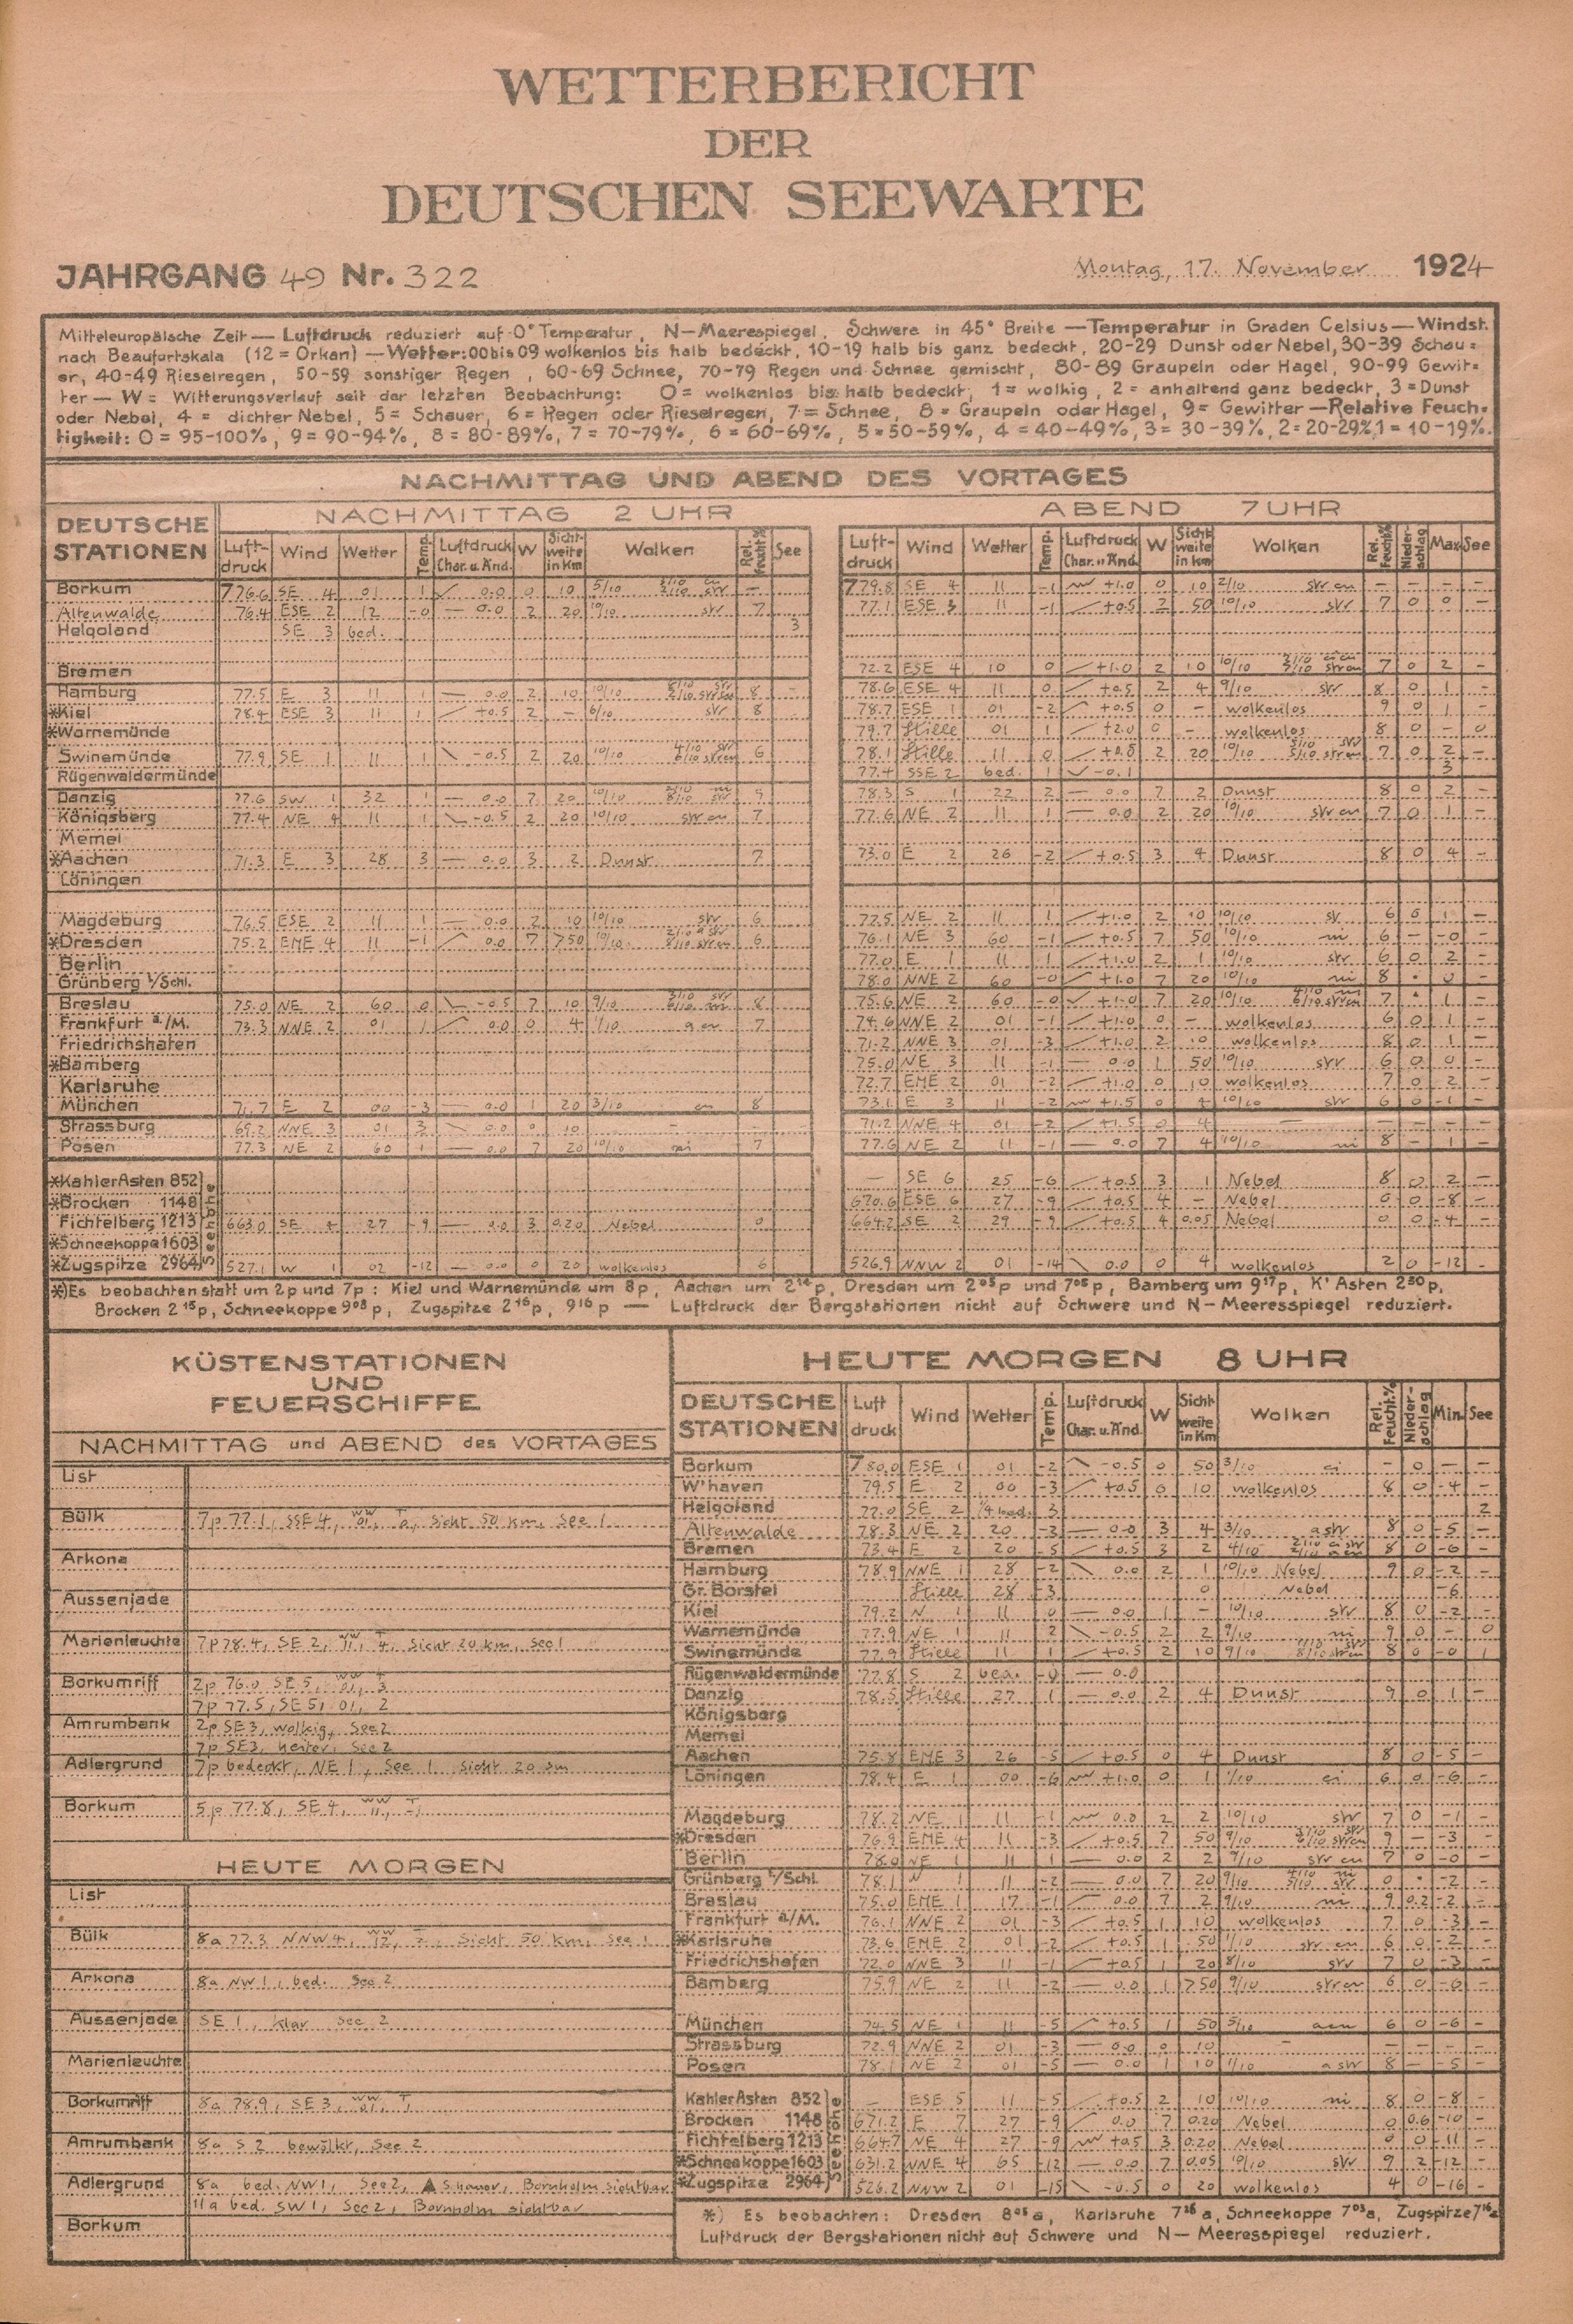 WETTERBERICHT
DER
DEUTSCHEN SEEWARTE
JAHRGANG 49 Nr. 322 Montag, 17. November 1924
Mitteleuropäische Zeit — Luftdruck reduziert auf 0° Temperatur, N—Meerespiegel, Schwere in 45° Breite — Temperatur in Graden Celsius — Windst.
nach Beaufortskala (12 = Orkan) — Wetter: 00 bis 09 wolkenlos bis halb bedeckt, 10-19 halb bis ganz bedeckt, 20-29 Dunst oder Nebel, 30-39 Schau=
er, 40-49 Rieselregen, 50-59 sonstiger Regen, 60-69 Schnee, 70-79 Regen und Schnee gemischt, 80-89 Graupeln oder Hagel, 90-99 Gewit=
ter — W = Witterungsverlauf seit der letzten Beobachtung: 0 = wolkenlos bis halb bedeckt, 1 = wolkig, 2 = anhaltend ganz bedeckt, 3 = Dunst
oder Nebel, 4 = dichter Nebel, 5 = Schauer, 6 = Regen oder Rieselregen, 7 = Schnee, 8 = Graupeln oder Hagel, 9 = Gewitter — Relative Feuch=
tigkeit: 0 = 95-100%, 9 = 90-94%, 8 = 80-89%, 7 = 70-79%, 6 = 60-69%, 5 = 50-59%, 4 = 40-49%, 3 = 30-39%, 2 = 20-29%, 1 = 10-19%.
NACHMITTAG UND ABEND DES VORTAGES
DEUTSCHE STATIONEN
NACHMITTAG 2 UHR
ABEND 7 UHR
Luft-druck Wind Wetter Temp. Luftdruck Char. u. Änd. W Sicht-weite in Km Wolken Rel. Feucht.% See
Luft-druck Wind Wetter Temp. Luftdruck Char. u. Änd. W Sicht-weite in Km Wolken Rel. Feucht.% Nieder-schlag Max. See
Borkum 776.6 SE 4 01 1 0.0 0 10 5/10 779.8 SE 4 11 -1 +1.0 0 10 2/10 str cu
Altenwalde 76.4 ESE 2 12 -0 — 0.0 2 20 10/10 str 7 77.1 ESE 3 11 -1 +0.5 2 50 10/10 str 7 0 0 –
Helgoland SE 3 bed. 3
Bremen 72.2 ESE 4 10 0 +1.0 2 10 10/10 7 0 2 –
Hamburg 77.5 E 3 11 1 — 0.0 2 10 10/10 8 – 78.6 ESE 4 11 0 +0.5 2 4 9/10 str 8 0 1 –
*Kiel 78.4 ESE 3 11 1 +0.5 2 – 6/10 str 8 78.7 ESE 1 01 -2 +0.5 0 – wolkenlos 9 0 1 –
*Warnemünde 79.7 Stille 01 1 +2.0 0 – wolkenlos 8 0 – 0
Swinemünde 77.9 SE 1 11 1 -0.5 2 20 10/10 6 78.1 Stille 11 0 2 20 10/10 7 0 2 –
Rügenwaldermünde 77.4 SSE 2 bed. 1 -0.1 3
Danzig 77.6 SW 1 32 1 — 0.0 7 20 10/10 9 78.3 S 1 22 2 — 0.0 7 2 Dunst 8 0 2 –
Königsberg 77.4 NE 4 11 1 -0.5 2 20 10/10 str cu 7 77.6 NE 2 11 1 — 0.0 2 20 10/10 str cu 7 0 1 –
Memel
*Aachen 71.3 E 3 28 3 — 0.0 3 2 Dunst 7 73.0 E 2 26 -2 +0.5 3 4 Dunst 8 0 4 –
Löningen
Magdeburg 76.5 ESE 2 11 1 — 0.0 2 10 10/10 str 6 77.5 NE 2 11 1 +1.0 2 10 10/10 6 0 1 –
*Dresden 75.2 ENE 4 11 -1 0.0 7 750 10/10 6 76.1 NE 3 60 -1 +0.5 7 50 10/10 ni 6 – -0 –
Berlin 77.0 E 1 11 -1 +1.0 2 1 10/10 str 6 0 2 –
Grünberg i/Schl. 78.0 NNE 2 60 -0 +1.0 7 20 10/10 ni 8 • 0 –
Breslau 75.0 NE 2 60 0 -0.5 7 10 9/10 8 75.6 NE 2 60 -0 +1.0 7 20 10/10 7 • 1 –
Frankfurt a/M. 73.3 NNE 2 01 1 0.0 0 4 1/10 a cu 7 74.6 NNE 2 01 -1 +1.0 0 – wolkenlos 6 0 1 –
Friedrichshafen 71.2 NNE 3 01 -3 +1.0 2 10 wolkenlos 8 0 1 –
*Bamberg 75.0 NE 3 11 -1 — 0.0 1 50 10/10 str 6 0 0 –
Karlsruhe 72.7 ENE 2 01 -2 +1.0 0 10 wolkenlos 7 0 2 –
München 71.7 E 2 00 -3 — 0.0 1 20 3/10 cu 8 73.1 E 3 11 -2 +1.5 0 4 10/10 str 6 0 -1 –
Strassburg 69.2 NNE 3 01 3 0.0 0 10 – 71.2 NNE 4 01 -2 +1.5 0 4 –
Posen 77.3 NE 2 60 1 — 0.0 7 20 10/10 ni 7 77.6 NE 2 11 -1 — 0.0 7 4 10/10 ni 8 – 1 –
*Kahler Asten 852 – SE 6 25 -6 +0.5 3 1 Nebel 8 0 2 –
*Brocken 1148 670.6 ESE 6 27 -9 +0.5 4 – Nebel 0 0 -8 –
Fichtelberg 1213 663.0 SE 4 27 -9 — 0.0 3 0.20 Nebel 0 664.2 SE 2 29 -9 +0.5 4 0.05 Nebel 0 0 -4 –
*Schneekoppe 1603
*Zugspitze 2964 527.1 W 1 02 -12 — 0.0 0 20 wolkenlos 6 526.9 NNW 2 01 -14 0.0 0 4 wolkenlos 2 0 -12 –
Seehöhe
*) Es beobachten statt um 2p und 7p: Kiel und Warnemünde um 8p, Aachen um 2 14 p, Dresden um 2 05 p und 7 05 p, Bamberg um 9 17 p, K' Asten 2 30 p,
Brocken 2 15 p, Schneekoppe 9 03 p, Zugspitze 2 16 p, 9 16 p — Luftdruck der Bergstationen nicht auf Schwere und N—Meeresspiegel reduziert.
KÜSTENSTATIONEN
UND
FEUERSCHIFFE
NACHMITTAG und ABEND des VORTAGES
List
Bülk 7p 77.1, SSE 4, ww 01, T 0, Sicht 50 km, See 1
Arkona
Aussenjade
Marienleuchte 7p 78.4, SE 2, ww 11, T 4, Sicht 20 km, See 1
Borkumriff 2p 76.0 SE 5, ww 01, T 3
7p 77.5, SE 5, 01, 2
Amrumbank 2p SE 3, wolkig, See 2
7p SE 3, heiter, See 2
Adlergrund 7p bedeckt, NE 1, See 1 Sicht 20 sm
Borkum 5p 77.8, SE 4, ww 11, T -1
HEUTE MORGEN
List
Bülk 8a 77.3 NNW 4, ww 12, Sicht 50 km, See 1
Arkona 8a NW 1, bed. See 2
Aussenjade SE 1, klar See 2
Marienleuchte
Borkumriff 8a 78.9, SE 3, ww 01, T 1
Amrumbank 8a S 2 bewölkt, See 2
Adlergrund 8a bed. NW 1, See 2, ▲ Schauer, Bornholm sichtbar
11a bed. SW 1, See 2, Bornholm sichtbar
Borkum
HEUTE MORGEN 8 UHR
DEUTSCHE STATIONEN Luft druck Wind Wetter Temp. Luftdruck Char. u. Änd. W Sicht-weite in Km Wolken Rel. Feucht.% Nieder-schlag Min. See
Borkum 780.0 ESE 1 01 -2 -0.5 0 50 3/10 ci – 0 – –
W'haven 79.5 E 2 00 -3 +0.5 0 10 wolkenlos 8 0 -4 –
Helgoland 77.0 SE 2 1/4 bed. 3 2
Altenwalde 78.3 NE 2 20 -3 — 0.0 3 4 3/10 a str 8 0 -5 –
Bremen 73.4 E 2 20 -5 +0.5 3 2 4/10 8 0 -6 –
Hamburg 78.9 NNE 1 28 -2 0.0 2 1 10/10 Nebel 9 0 -2 –
Gr. Borstel Stille 28 -3 0 Nebel -6
Kiel 79.2 N 1 11 0 — 0.0 1 – 10/10 str 8 0 -2 –
Warnemünde 77.9 NE 1 11 2 -0.5 2 2 9/10 ni 9 0 – 0
Swinemünde 77.9 Stille 11 1 +0.5 2 10 9/10 8 0 -0 1
Rügenwaldermünde 77.8 S 2 bed. -0 — 0.0
Danzig 78.5 Stille 27 1 — 0.0 2 4 Dunst 9 0 1 –
Königsberg
Memel
Aachen 75.8 ENE 3 26 -5 +0.5 0 4 Dunst 8 0 -5 –
Löningen 78.4 E 1 00 -6 +1.0 0 1 1/10 ci 6 0 -6 –
Magdeburg 78.2 NE 1 11 -1 0.0 2 2 10/10 str 7 0 -1 –
*Dresden 76.9 ENE 4 11 -3 +0.5 7 50 9/10 9 – -3 –
Berlin 78.0 NE 1 11 1 — 0.0 2 2 9/10 str cu 7 0 -0 –
Grünberg i/Schl. 78.1 N 1 11 -2 — 0.0 7 20 9/10 0 • -2 –
Breslau 75.0 ENE 1 17 -1 0.0 7 2 9/10 ni 9 0.2 -2 –
Frankfurt a/M. 76.1 NNE 2 01 -3 +0.5 1 10 wolkenlos 7 0 -3 –
*Karlsruhe 73.6 ENE 2 01 -2 +0.5 1 50 1/10 str cu 6 0 -2 –
Friedrichshafen 72.0 NNE 3 11 -1 +0.5 1 20 8/10 str 7 0 -3 –
Bamberg 75.9 NE 2 11 -2 — 0.0 1 >50 9/10 str cu 6 0 -6 –
München 74.5 NE 1 11 -5 +0.5 1 50 5/10 a cu 6 0 -6 –
Strassburg 72.9 NNE 2 01 -3 — 0.0 0 10 – – – –
Posen 78.1 NE 2 01 -5 — 0.0 1 10 1/10 a str 8 – -5 –
Kahler Asten 852 – ESE 5 11 -5 +0.5 2 10 10/10 ni 8 0 -8 –
Brocken 1148 671.2 E 7 27 -9 0.0 7 0.20 Nebel 0 0.6 -10 –
Fichtelberg 1213 664.7 NE 4 27 -9 +0.5 3 0.20 Nebel 0 0 -11 –
*Schneekoppe 1603 631.2 NNE 4 65 -12 — 0.0 7 0.05 10/10 str 9 2 -12 –
*Zugspitze 2964 526.2 NNW 2 01 -15 -0.5 0 20 wolkenlos 4 0 -16 –
Seehöhe
*) Es beobachten: Dresden 8 05 a, Karlsruhe 7 26 a, Schneekoppe 7 03 a, Zugspitze 7 16 a
Luftdruck der Bergstationen nicht auf Schwere und N—Meeresspiegel reduziert.